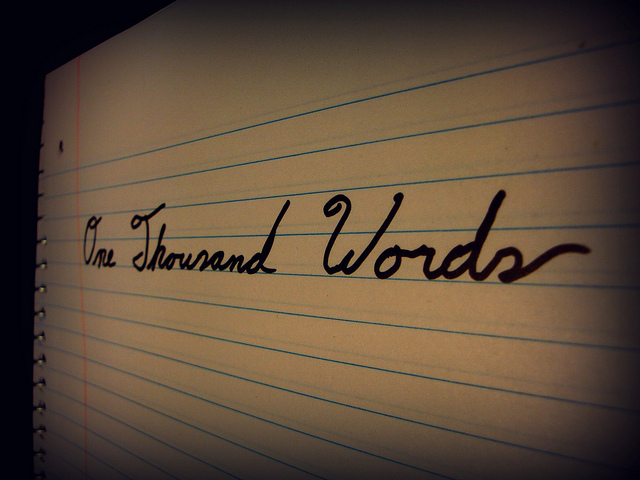 One Thousand Words